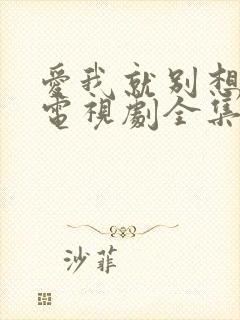 愛我就別想
電視劇全集
沙菲